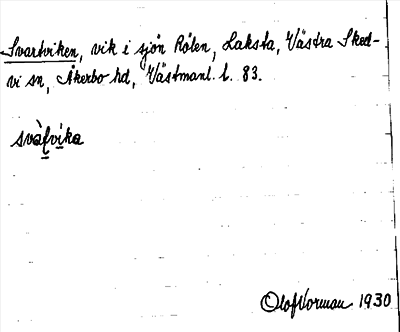 Svartviken, vik i sjön Rölen, Laksta, Västra Sked-
vi sn, Åkerbo hd, Västmanl. l. 83.
svàfvíka
Olof Norman 1930